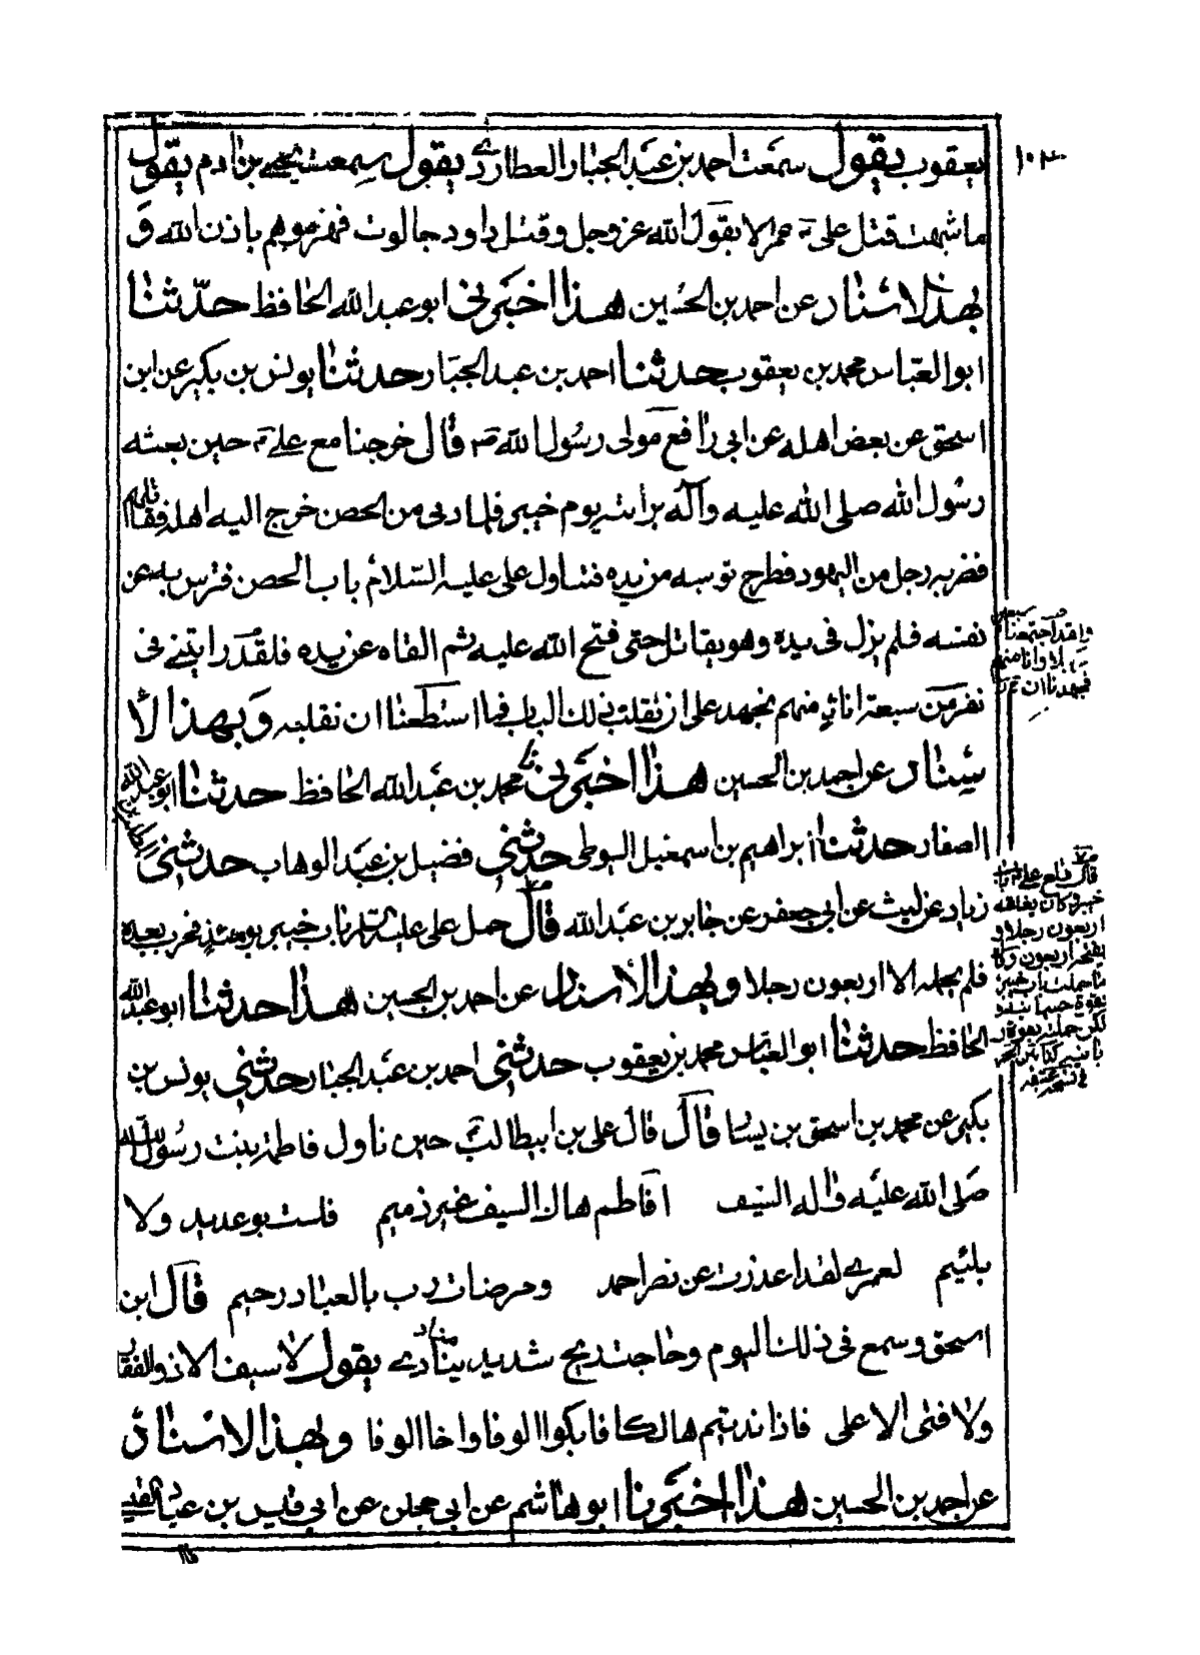 يعقوب يقول سمعت احمد بن عبد الجبار العطاردي يقول سمعت يحيى بن ادم يقول
ما شبهت قتل علي عمرا الا بقول الله عز وجل وقتل داود جالوت فهزموهم باذن الله و
بهذا الاسناد عن احمد بن الحسين هذا اخبرني ابو عبد الله الحافظ حدثنا
ابو العباس محمد بن يعقوب حدثنا احمد بن عبد الجبار حدثنا يونس بن بكير عن ابن
اسحق عن بعض اهله عن ابي رافع مولى رسول الله ص قال خرجنا مع علي حين بعثه
رسول الله صلى الله عليه وآله برأيته يوم خيبر فلما دنى من الحصن خرج اليه اهله فقاتلهم
فضربه رجل من اليهود فطرح توسه من يده فتناول علي عليه السلام باب الحصن فترس به عن
نفسه فلم يزل في يده وهو يقاتل حتى فتح الله عليه ثم القاه عن يده فلقد رايتني في
نفر من سبعة انا ثامنهم نجهد على ان نقلب ذلك الباب فما استطعنا ان نقلبه وبهذا الا
سناد عن احمد بن الحسين هذا اخبرني محمد بن عبد الله الحافظ حدثنا ابو عبد الله
الصفار حدثنا ابراهيم بن اسمعيل السوطي حدثني فضيل بن عبد الوهاب حدثني
زياد عن ليث عن ابي جعفر عن جابر بن عبد الله قال حمل علي باب خيبر يومئذ فجرب بعده
فلم يحمله الا اربعون رجلا وبهذا الاسناد عن احمد بن الحسين هذا حدثنا ابو عبد الله
الحافظ حدثنا ابو العباس محمد بن يعقوب حدثني احمد بن عبد الجبار حدثني يونس بن
بكير عن محمد بن اسحق بن يسا قال قال علي بن ابيطالب حين ناول فاطمة بنت رسول الله
صلى الله عليه واله السيف افاطم هاك السيف غير ذميم فلست بوعديد ولا
بلئيم لعمري لقد اعذرت عن نصر احمد ومرضات رب بالعباد رحيم قال ابن
اسحق وسمع في ذلك اليوم وهاجت ريح شديد مناد ينادي يقول لا سيف الا ذو الفقار
ولا فتى الا علي فاذا ندبتم هالكا فابكوا الوفا واخا الوفا وبهذا الاسناد
عن احمد بن الحسين هذا اخبرنا ابو هاشم عن ابي مجلز عن ابي قيس بن عباد القيسي